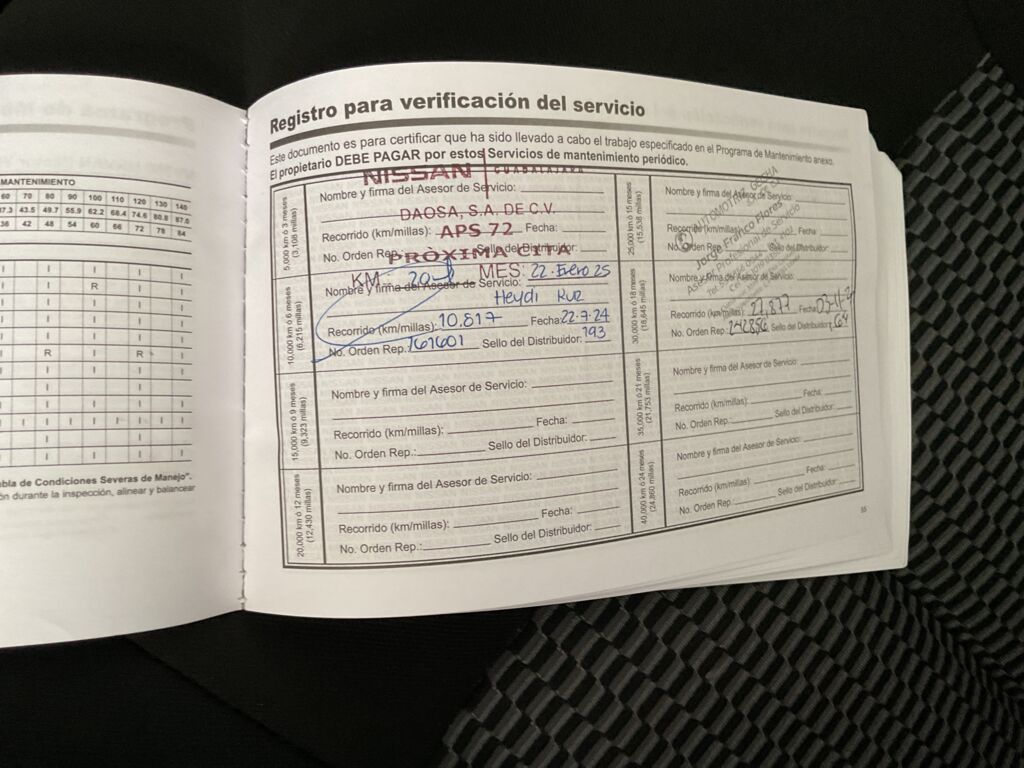 MANTENIMIENTO
60 70 80 90 100 110 120 130 140
37.3 43.5 49.7 55.9 62.2 68.4 74.6 80.8 87.0
36 42 48 54 60 66 72 78 84
I I I I I
I I R I I
I I I I I
I I I I I
I I I I I
R I R I
I I I I I
I I I I I
I I I I I
I I I I I I I
I I I I
I I I I I
abla de Condiciones Severas de Manejo".
ón durante la inspección, alinear y balancear
Registro para verificación del servicio
Este documento es para certificar que ha sido llevado a cabo el trabajo especificado en el Programa de Mantenimiento anexo.
El propietario DEBE PAGAR por estos Servicios de mantenimiento periódico.
5,000 km ó 3 meses
(3,108 millas)
NISSAN GUADALAJARA
Nombre y firma del Asesor de Servicio:
DAOSA, S.A. DE C.V.
Recorrido (km/millas): APS 72 Fecha:
No. Orden Rep. Sello del Distribuidor:
PRÒXIMA CITA
KM MES: 22. Enero 25
10,000 km ó 6 meses
(6,215 millas)
Nombre y firma del Asesor de Servicio:
Heydi Ruz
Recorrido (km/millas): 10.817 Fecha: 22-7-24
No. Orden Rep.: 761601 Sello del Distribuidor: 193
15,000 km ó 9 meses
(9,323 millas)
Nombre y firma del Asesor de Servicio:
Recorrido (km/millas): Fecha:
No. Orden Rep.: Sello del Distribuidor:
20,000 km ó 12 meses
(12,430 millas)
Nombre y firma del Asesor de Servicio:
Recorrido (km/millas): Fecha:
No. Orden Rep.: Sello del Distribuidor:
25,000 km ó 15 meses
(15,538 millas)
Nombre y firma del Asesor de Servicio:
Recorrido (km/millas) Fecha
No. Orden Rep. Sello del Distribuidor
AUTOMOTRIZ GOCHA
Jorge Franco Flores
Asesor Profesional de Servicio
30,000 km ó 18 meses
(18,645 millas)
Nombre y firma del Asesor de Servicio:
Recorrido (km/millas): 27,877 Fecha:
No. Orden Rep: 242886 Sello del Distribuidor: 64
35,000 km ó 21 meses
(21,753 millas)
Nombre y firma del Asesor de Servicio:
Recorrido (km/millas): Fecha:
No. Orden Rep. Sello del Distribuidor:
40,000 km ó 24 meses
(24,860 millas)
Nombre y firma del Asesor de Servicio:
Recorrido (km/millas): Fecha:
No. Orden Rep.: Sello del Distribuidor: